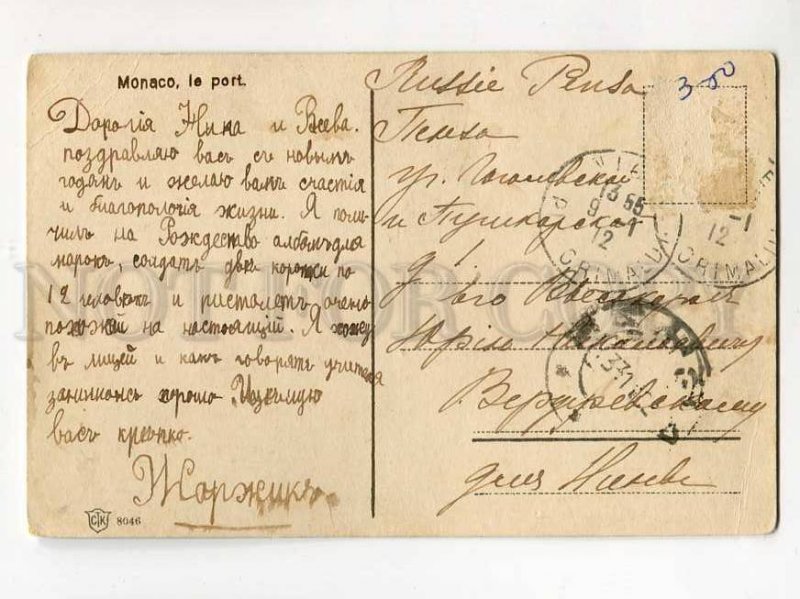 Monaco, le port.
Дорогія Нина и Всева.
поздравляю васъ съ новымъ
годомъ и желаю вамъ счастія
и благополучія жизни. Я полу-
чилъ на Рождество альбомъ для
марокъ, солдатъ две коробки по
12 человекъ и пистолетъ очень
похожій на настоящій. Я хожу
въ лицей и какъ говорятъ учителя
занимаюсь хорошо. Цѣлую
васъ крепко.
Жоржикъ
СТК 8046
Russie Pensa
Пенза
уг. Гоголевской
и Пушкарской
д 1
Его
Юрію Николаевичу
для Нины
300
13 55
9
12
GRIMALDI
12 -1
GRIMALDI
NOT FOR COPY